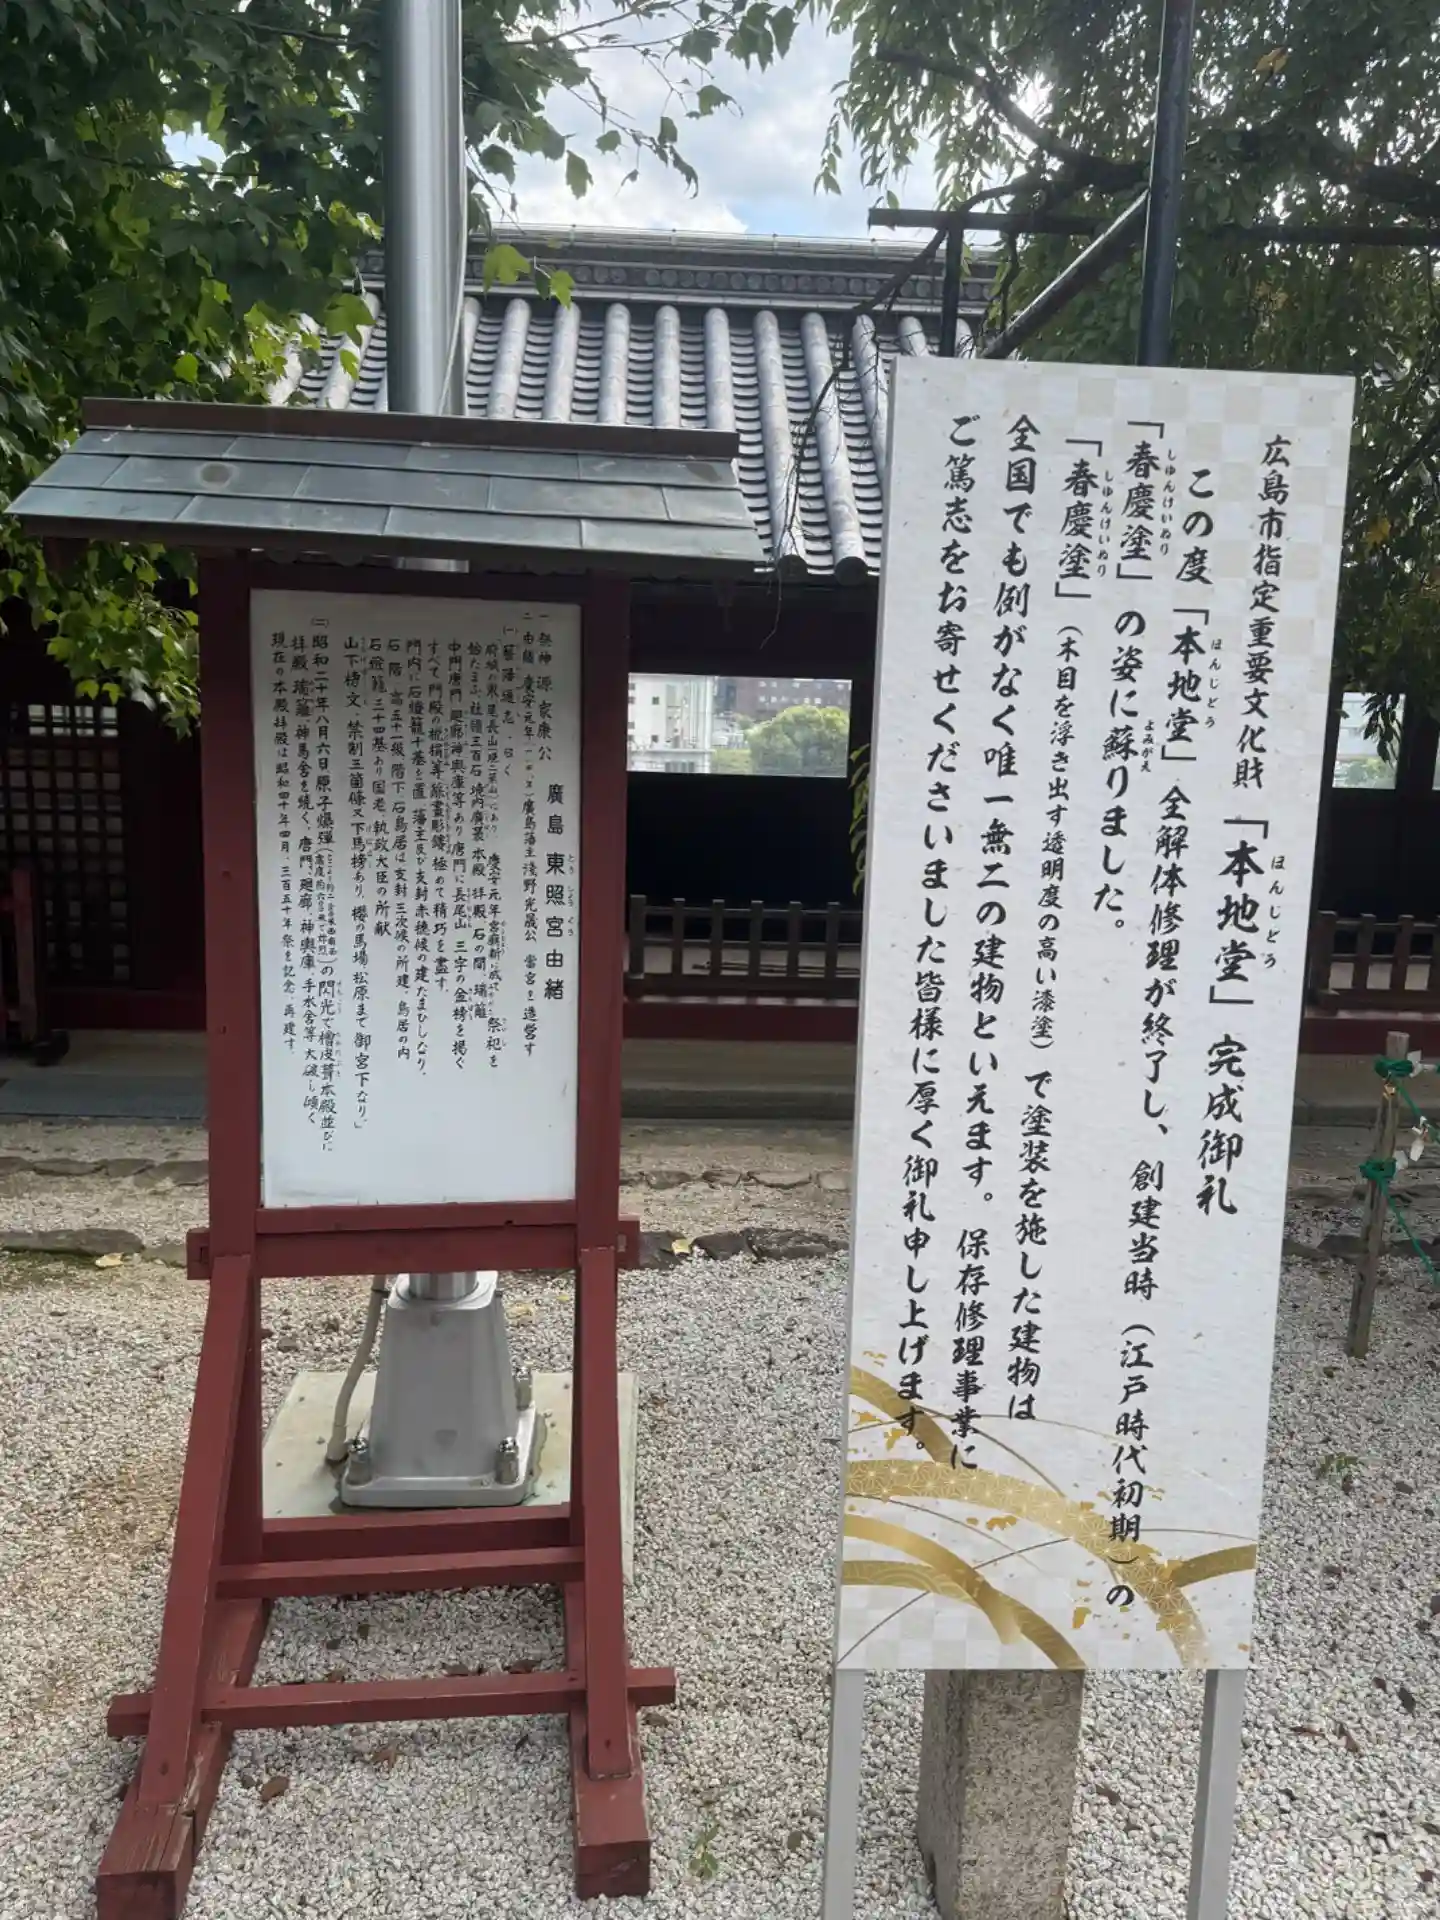 広島市指定重要文化財「本地堂」完成御礼
ほんじどう
この度「本地堂」全解体修理が終了し、創建当時（江戸時代初期）の
ほんじどう
「春慶塗」の姿に蘇りました。
しゅんけいぬり
よみがえ
「春慶塗」（木目を浮き出す透明度の高い漆塗）で塗装を施した建物は
しゅんけいぬり
全国でも例がなく唯一無二の建物といえます。保存修理事業に
ご篤志をお寄せくださいました皆様に厚く御礼申し上げます。
廣島東照宮由緒
とうしょうぐう
一 祭神 源家康公
二 由緒 慶安元年 廣島藩主淺野光晟公 當宮を造営す
(一)「藝藩通志」曰く
府城の東、尾長山にあり 慶安元年宮廟新に成て祭祀を
始たまふ、社領三百石、境内廣袤、本殿、拝殿、石の間、瑞籬
中門唐門、廻廊神輿庫等あり唐門に長尾山 三字の金榜を掲ぐ
すべて、門殿の梲構等 極めて精巧を盡す、
門内に石燈籠十基を置、藩主及び支封赤穂候の建たまひしなり、
石階 高五十一級、階下 石鳥居は支封三次候の所建、鳥居の内
石燈籠三十四基あり国老、執政大臣の所献
山下榜文、禁制三箇條又下馬榜あり、櫻の馬場、松原まで御宮下なり、」
(二)昭和二十年八月六日原子爆弾の閃光で檜皮葺本殿並びに
拝殿、瑞籬、神馬舎を焼く、唐門、廻廊、神輿庫、手水舎等大破し傾く
現在の本殿拝殿は昭和四十年四月、三百五十年祭を記念、再建す、